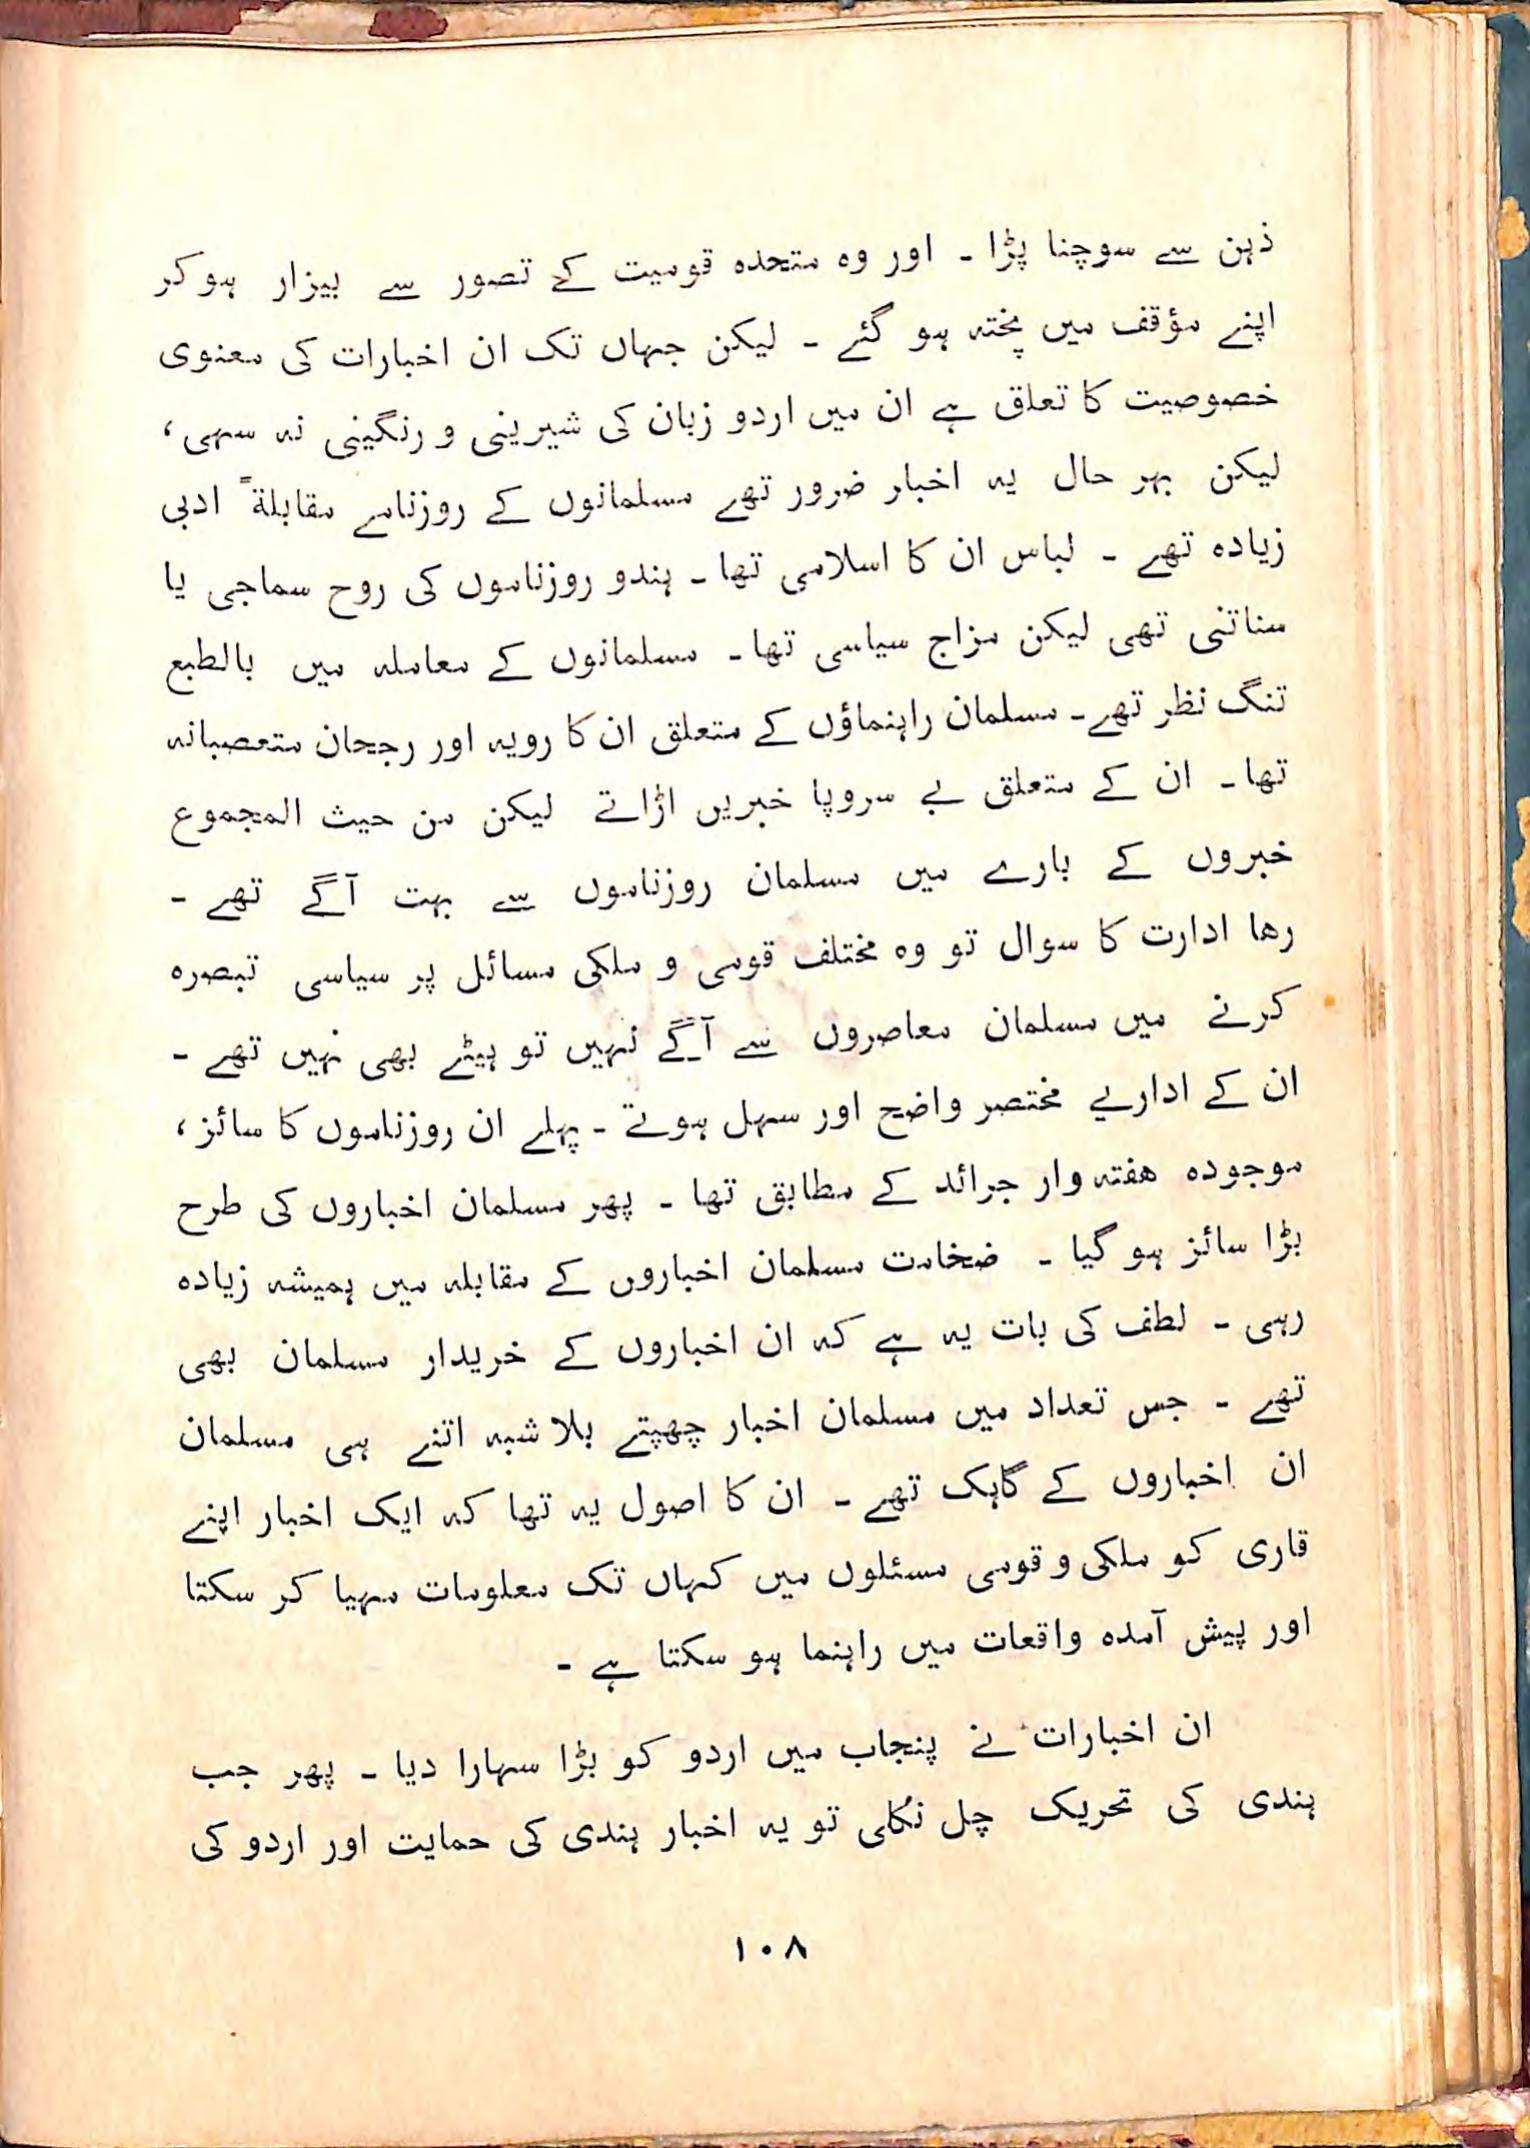 ذہن سے سوچنا پڑا ۔ اور وہ متحدہ قومیت کے تصور سے بیزار ہو کر
اپنے مؤقف میں پختہ ہو گئے ۔ لیکن جہاں تک ان اخبارات کی معنوی
خصوصیت کا تعلق ہے ان میں اردو زبان کی شیرینی و رنگینی نہ سہی ،
لیکن بہر حال یہ اخبار ضرور تھے مسلمانوں کے روزنامے مقابلۃً ادبی
زیادہ تھے ۔ لباس ان کا اسلامی تھا ۔ ہندو روزناموں کی روح سماجی یا
سناتنی تھی لیکن مزاج سیاسی تھا ۔ مسلمانوں کے معاملہ میں بالطبع
تنگ نظر تھے ۔ مسلمان راہنماؤں کے متعلق ان کا رویہ اور رجحان متعصبانہ
تھا ۔ ان کے متعلق بے سروپا خبریں اڑاتے لیکن من حیث المجموع
خبروں کے بارے میں مسلمان روزناموں سے بہت آگے تھے ۔
رھا ادارت کا سوال تو وہ مختلف قومی و ملکی مسائل پر سیاسی تبصرہ
کرنے میں مسلمان معاصروں سے آگے نہیں تو ہیٹے بھی نہیں تھے ۔
ان کے اداریے مختصر واضح اور سہل ہوتے ۔ پہلے ان روزناموں کا سائز ،
موجودہ ھفتہ وار جرائد کے مطابق تھا ۔ پھر مسلمان اخباروں کی طرح
بڑا سائز ہو گیا ۔ ضخامت مسلمان اخباروں کے مقابلہ میں ہمیشہ زیادہ
رہی ۔ لطف کی بات یہ ہے کہ ان اخباروں کے خریدار مسلمان بھی
تھے ۔ جس تعداد میں مسلمان اخبار چھپتے بلا شبہ اتنے ہی مسلمان
ان اخباروں کے گاہک تھے ۔ ان کا اصول یہ تھا کہ ایک اخبار اپنے
قاری کو ملکی و قومی مسئلوں میں کہاں تک معلومات مہیا کر سکتا
اور پیش آمدہ واقعات میں راہنما ہو سکتا ہے ۔
ان اخبارات نے پنجاب میں اردو کو بڑا سہارا دیا ۔ پھر جب
ہندی کی تحریک چل نکلی تو یہ اخبار ہندی کی حمایت اور اردو کی
۱۰۸